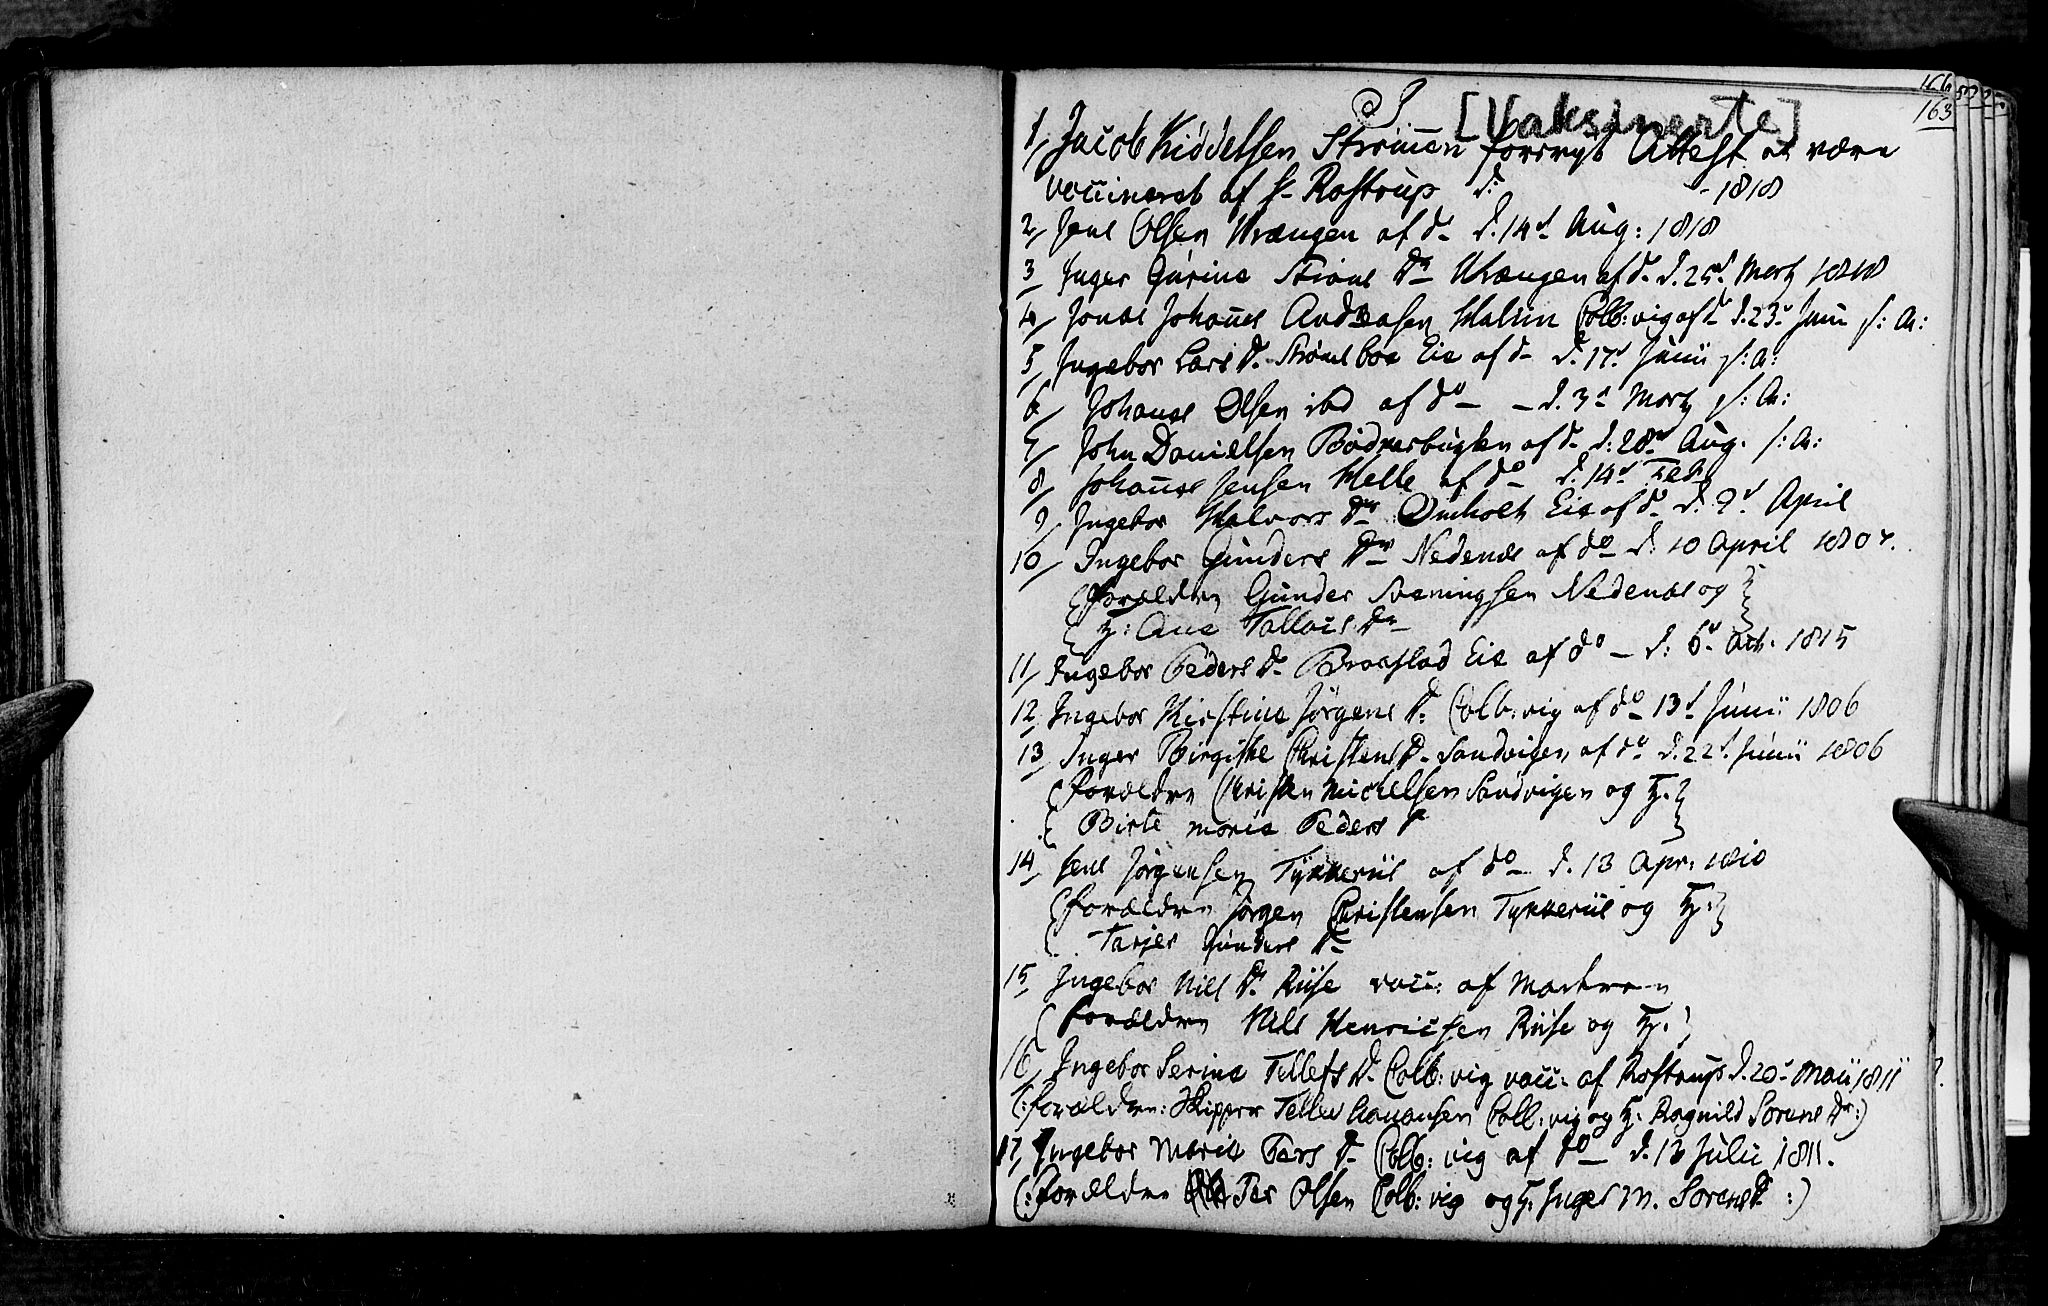 166
163
J. [Vaksinerte]
1/ Jacob Kiddelsen Strömen forevyst Attest at være
vaccineret af H- Rostrup d: - 1818
2/ Jens Olsen Vrængen af do d. 14d Aug: 1818
3 Inger Gurine Dr Vrængen af do d. 25d Marts 1818
4/ Jonas Johannes Andreasen Colb:vig af do d. 23d Juni s: A:
5/ Ingebor Lars D. Strömsboe Eie af do d. 17d Junii s: A:
6/ Johannes Olsen ibd af do - - d. 3d Marts s: A:
7/ John Danielsen Bødkerbugten af do d: 28d Aug. s: A:
8/ Johannes Jensen Helle af do d. 14d Feb
9/ Ingebor Halvors Dr Omholt Eie af do d. 2d April
10/ Ingebor Gunders Dr Nedenæs af do d: 10 April 1807.
(Forældre Gunder Svenningsen Nedenæs og
H: Ane Dr
11/ Ingebor Peders D. Braastad Eie af do - d: 6d Oct. 1815
12 Ingebor Kirstine Jörgens D. Colb:vig af do 13d Junii 1806
13 Inger Birgitte Christens D. Sandvigen af do d. 22d Junii 1806
(Forældre Christen Michelsen Sandvigen og H.
Birte Marie Peders D
14 Jens Jörgensen af do d. 13 Apr: 1810
(Forældre Jörgen Christensen og H:
Tarjer Gunders Dr
15 Ingebor Niels Dr Riise vacc: af
(Forældre Niels Henricksen Riise og H. )
16/ Ingebor Serine Tellefs D. Colb:vig vacc: af Rostrup d. 20d Maii 1811
(:Forældre: Skipper Tellev Aanonsen Colb:vig og H: Ragnild Sorens Dr:)
17, Ingebor Marie Pers D- Colb:vig af do - d. 13 Julii 1811.
(:Forældre Per Olsen Colb:vig og H. Inger M. Sorens D :)